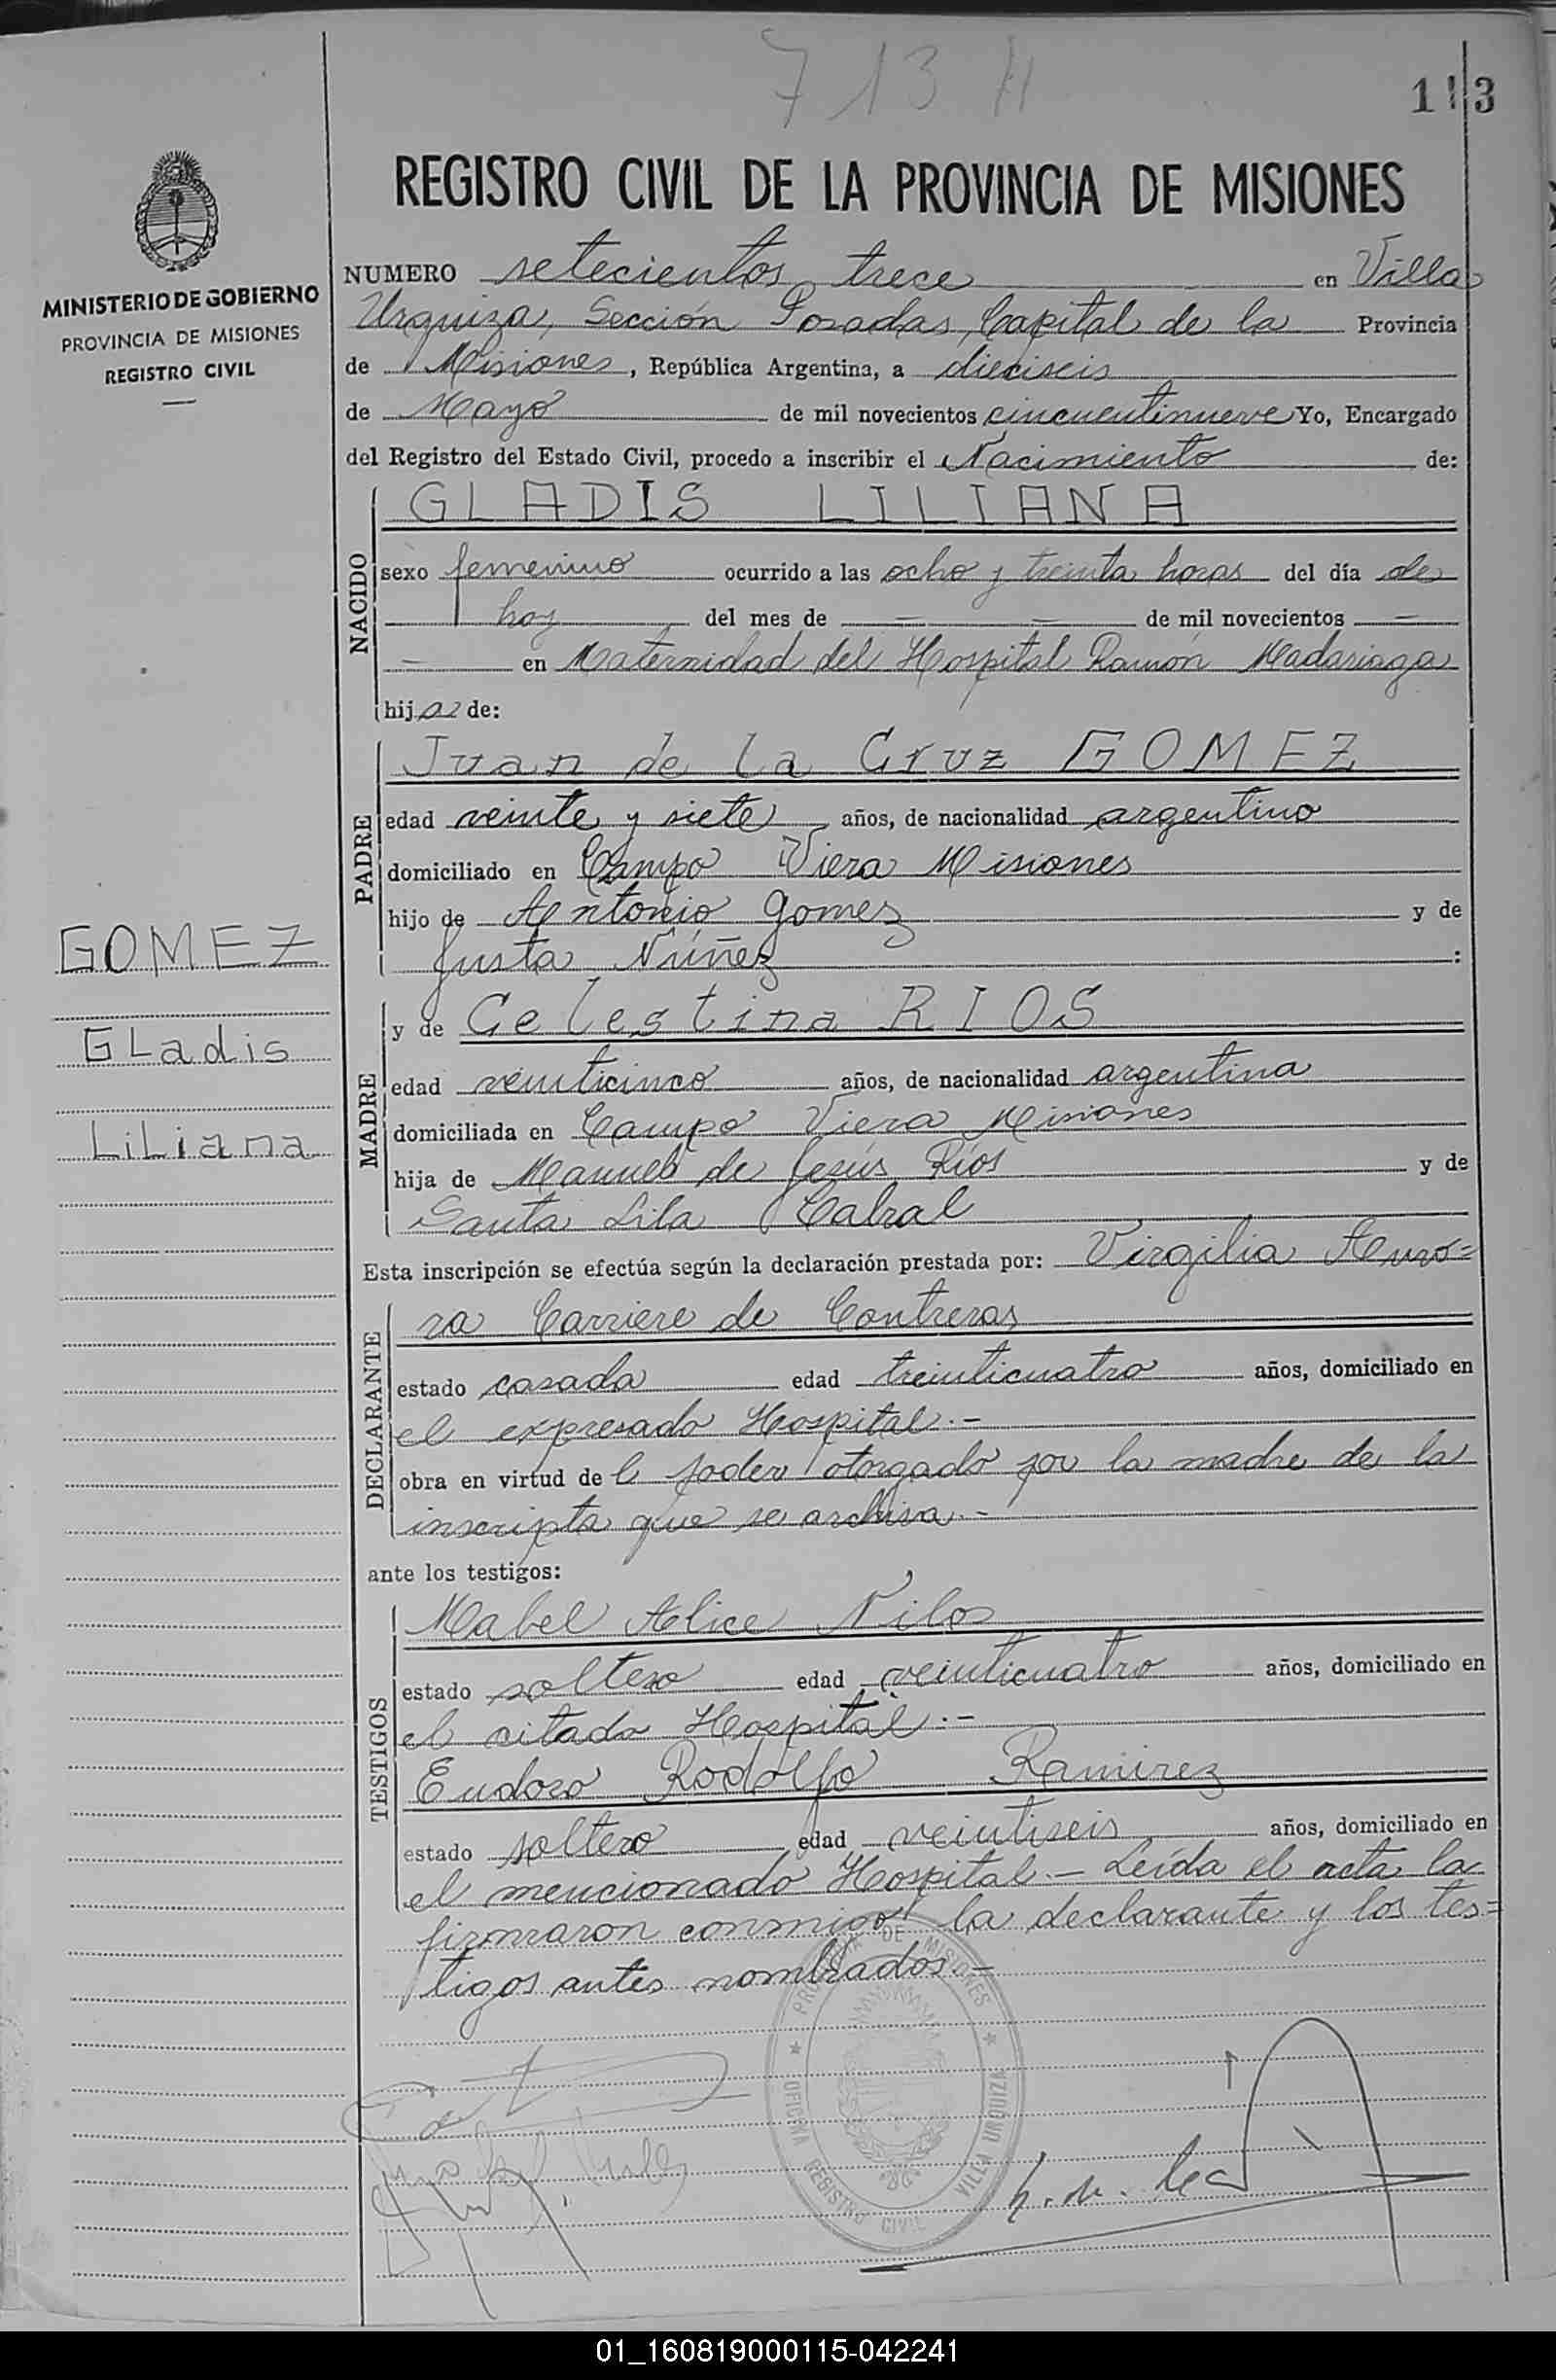 713 H
113
REGISTRO CIVIL DE LA PROVINCIA DE MISIONES
MINISTERIO DE GOBIERNO
PROVINCIA DE MISIONES
REGISTRO CIVIL
NUMERO setecientos trece en Villa
Urquiza, Sección Posadas, Capital de la Provincia
de Misiones, República Argentina, a dieciseis
de Mayo de mil novecientos cincuentinueve Yo, Encargado
del Registro del Estado Civil, procedo a inscribir el Nacimiento de:
NACIDO
GLADIS LILIANA
sexo femenino ocurrido a las ocho y treinta horas del día de
hoy del mes de — — de mil novecientos —
— en Maternidad del Hospital Ramón Madariaga
hija de:
PADRE
Juan de la Cruz GOMEZ
edad veinte y siete años, de nacionalidad argentino
domiciliado en Campo Viera Misiones
hijo de Antonio Gomez y de
Justa Núñez :
GOMEZ
Gladis
Liliana
MADRE
y de Celestina RIOS
edad veinticinco años, de nacionalidad argentina
domiciliada en Campo Viera Misiones
hija de Manuel de Jesús Ríos y de
Santa Lila Cabral
Esta inscripción se efectúa según la declaración prestada por: Virgilia Auro=
DECLARANTE
ra Carriere de Contreras
estado casada edad treinticuatro años, domiciliado en
el expresado Hospital.-
obra en virtud de l poder otorgado por la madre de la
inscripta que se archiva.-
ante los testigos:
TESTIGOS
Mabel Alice Nilos
estado soltera edad veinticuatro años, domiciliado en
el citado Hospital.-
Eudoro Rodolfo Ramirez
estado soltero edad veintiseis años, domiciliado en
el mencionado Hospital.- Leída el acta la
firmaron conmigo la declarante y los tes=
tigos antes nombrados.-
PROVINCIA DE MISIONES
OFICINA REGISTRO CIVIL VILLA URQUIZA
01_160819000115-042241